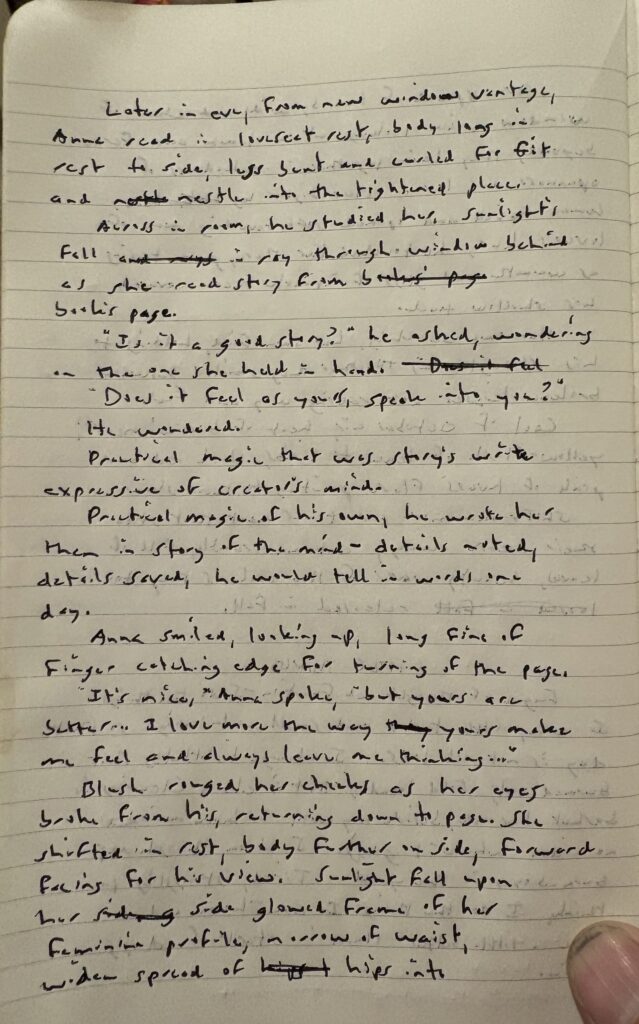 Later in eve, from new window vantage,
Anna read in loveseat rest, body long in
rest to side, legs bent and curled, for fit
and nestle into the tightened place.
Across in room, he studied her, sunlight's
fall in ray through window behind
as she read story from
book's page.
"Is it a good story?" he asked, wondering
on the one she held in hand.
"Does it feel as yours, speak into you?"
He wondered.
Practical magic that was story's write
expressive of creator's mind.
Practical magic of his own, he wrote her
then in story of the mind - details noted,
details saved, he would tell in words one
day.
Anna smiled, looking up, long fine of
finger catching edge for turning of the page.
"It's nice," Anna spoke, "but yours are
better... I love more the way yours make
me feel and always leave me thinking..."
Blush rouged her cheeks as her eyes
broke from his, returning down to page. She
shifted in rest, body further on side, forward
facing for his view. Sunlight fall upon
her side glowed frame of her
feminine profile, narrow of waist,
widen spread of hips into